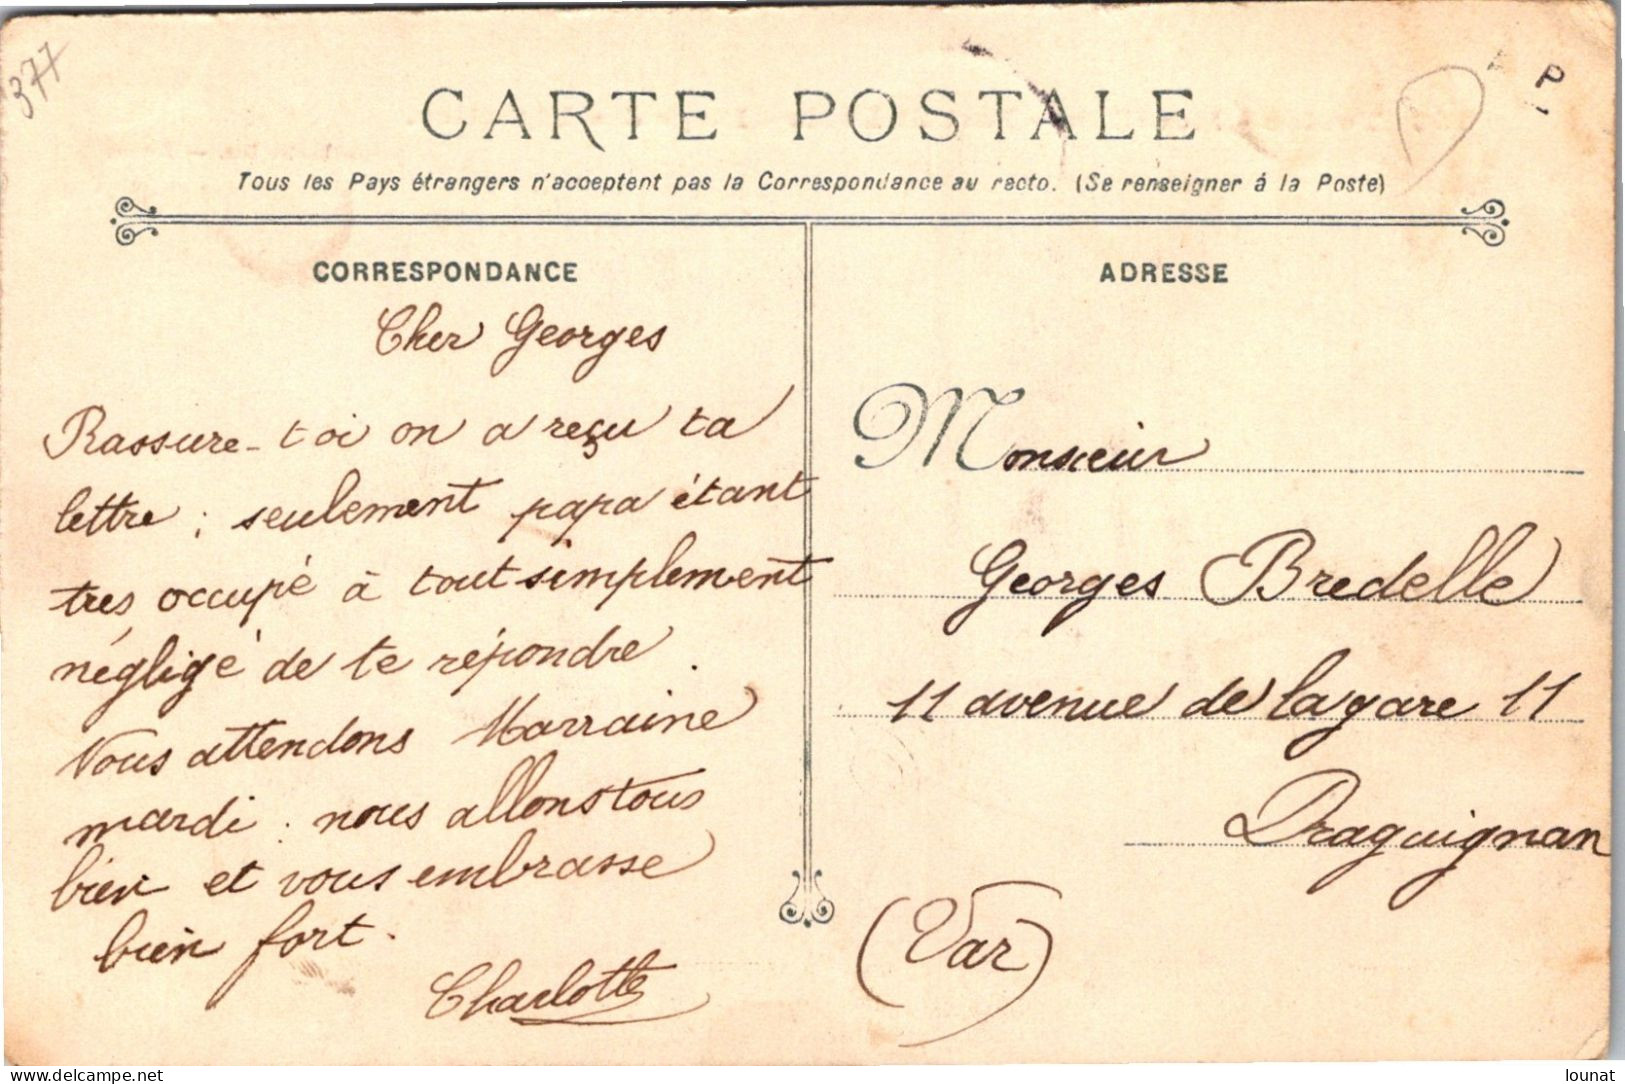 377
P
CARTE POSTALE
Tous les Pays étrangers n'acceptent pas la Correspondance au recto. (Se renseigner à la Poste)
CORRESPONDANCE
Cher Georges
Rassure-toi on a reçu ta
lettre ; seulement papa étant
tres occupé à tout simplement
négligé de te répondre.
Nous attendons Marraine
mardi. nous allons tous
bien et vous embrasse
bien fort.
Charlotte
ADRESSE
Monsieur
Georges Bredelle
11 avenue de la gare 11
Draguignan
(Var)
www.delcampe.net
lounat